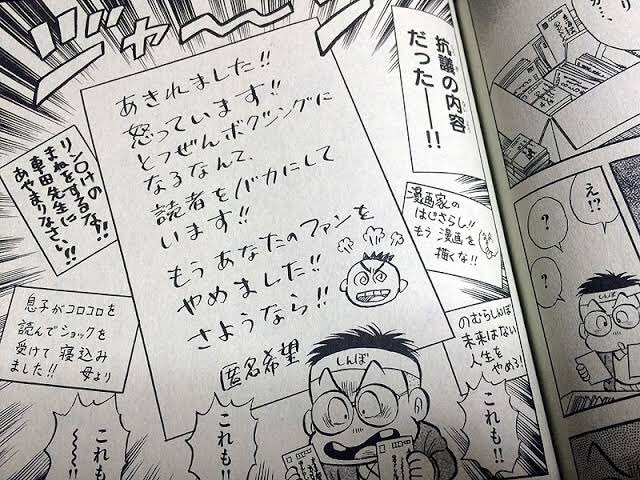 ジャーン
抗議の内容
だった――!!
あきれました!!
怒っています!!
とつぜんボクシングに
なるなんて、
読者をバカにして
います!!
もうあなたのファンを
やめました!!
さようなら!!
匿名希望
漫画家の
はじさらし!!
もう漫画を
描くな!!
のむらしんぼは
未来はない
人生を
やめろ!
リンかけの
まねをするな!!
車田先生に
あやまりなさい!!
息子がコロコロを
読んでショックを
受けて寝込み
ました!! 母より
しんぼ
これも!!
これも!!
これも
〜〜!!
え!?
?
?
しんぼ